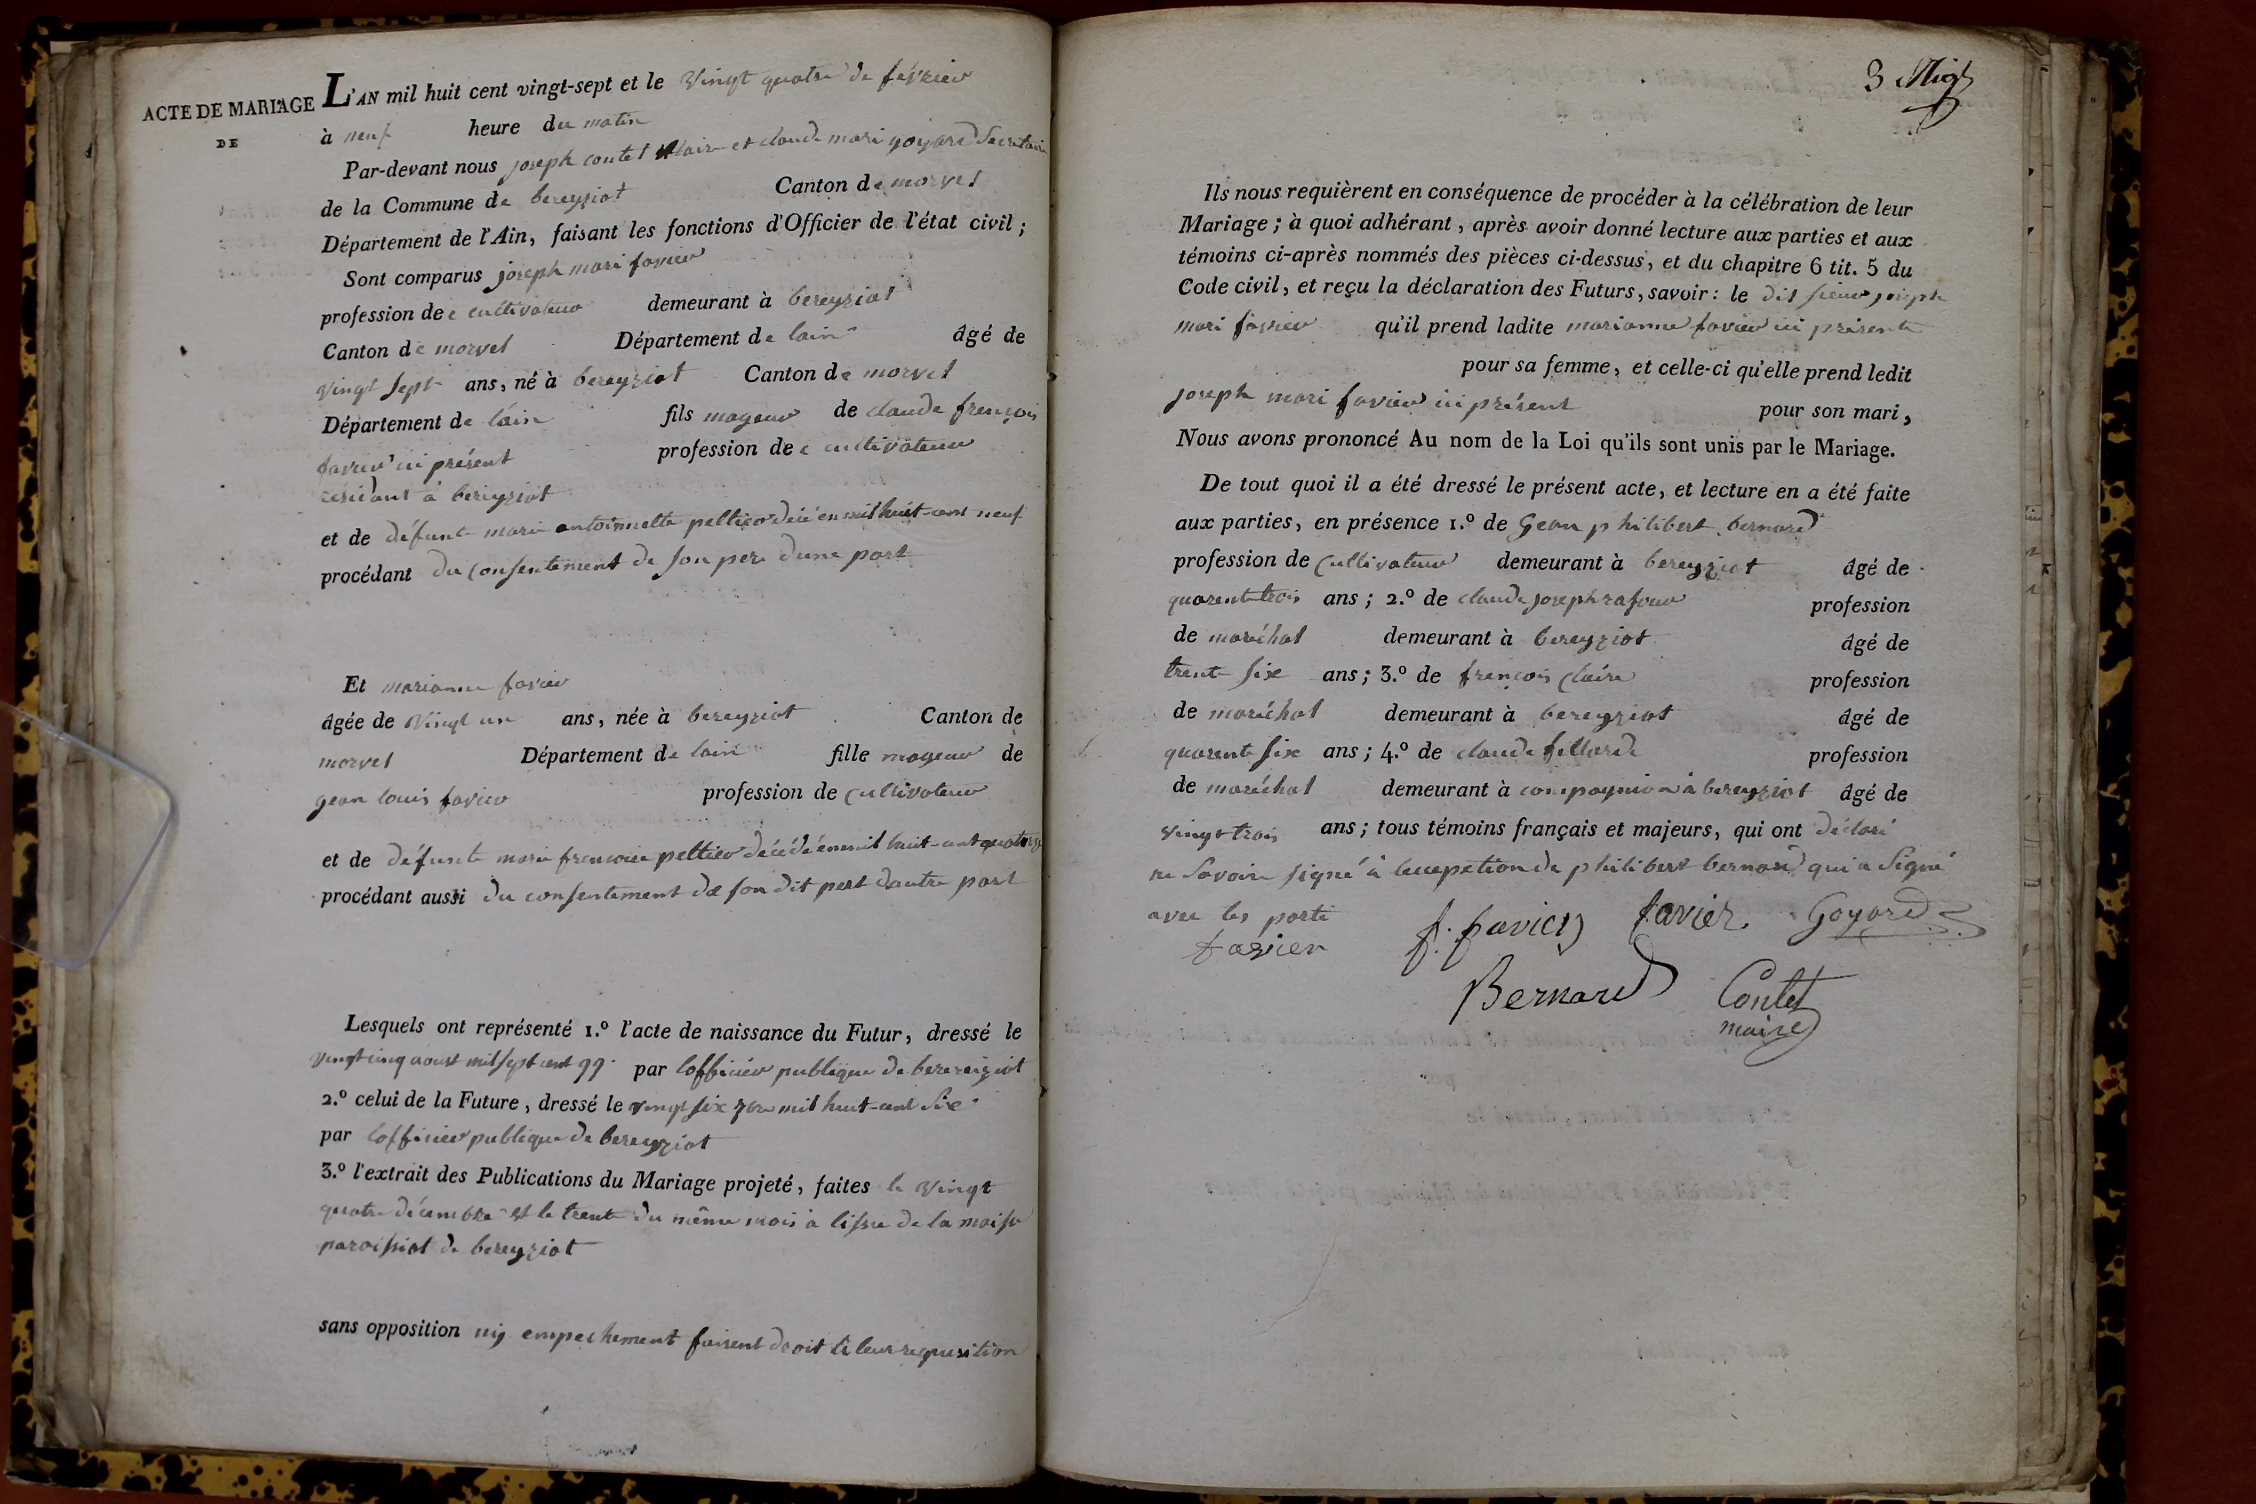 ACTE DE MARIAGE
DE
L'AN mil huit cent vingt-sept et le vingt quatre de février
à neuf heure du matin
Par-devant nous joseph contet Maire et claude mari goyard Secretaire
de la Commune de bereyziat Canton de morvel
Département de l'Ain, faisant les fonctions d'Officier de l'état civil ;
Sont comparus joseph mari favier
profession de cultivateur demeurant à bereyziat
Canton de morvel Département de lain âgé de
vingt sept ans, né à bereyziat Canton de morvel
Département de lain fils mageur de claude françois
favier ici présent profession de cultivateur
résidant à bereyziat
et de défunte marie antoinnette peltier décé en mil huit cent neuf
procédant du consentement de son pere dune part
Et marianne favier
âgée de vingt un ans, née à bereyziat Canton de
morvel Département de lain fille mageur de
gean louis favier profession de cultivateur
et de défunte marie francoise peltier décédé en mil huit cent quatorze
procédant aussi du consentement de son dit pert dautre part
Lesquels ont représenté 1.º l'acte de naissance du Futur, dressé le
vingt cinq aoust mil sept cent 99 par lofficier publique de berereiziat
2.º celui de la Future, dressé le vingt six 7bre mil huit cent six
par lofficier publique de bereyziat
3.º l'extrait des Publications du Mariage projeté, faites le vingt
quatre décembre et le trente du même mois à lissue de la
paroissial de bereyziat
sans opposition empechement faisent droit à leur requisition
3
Ils nous requièrent en conséquence de procéder à la célébration de leur
Mariage ; à quoi adhérant, après avoir donné lecture aux parties et aux
témoins ci-après nommés des pièces ci-dessus, et du chapitre 6 tit. 5 du
Code civil, et reçu la déclaration des Futurs, savoir : le dit sieur joseph
mari favier qu'il prend ladite marianne favier ici présente
pour sa femme, et celle-ci qu'elle prend ledit
joseph mari favier ici présent pour son mari,
Nous avons prononcé Au nom de la Loi qu'ils sont unis par le Mariage.
De tout quoi il a été dressé le présent acte, et lecture en a été faite
aux parties, en présence 1.º de Gean philibert bernard
profession de cultivateur demeurant à bereyziat âgé de
quarente trois ans ; 2.º de claude joseph profession
de maréchal demeurant à bereyziat âgé de
trente six ans ; 3.º de françois claire profession
de maréchal demeurant à bereyziat âgé de
quarente six ans ; 4.º de claude profession
de maréchal demeurant à à bereyziat âgé de
vingt trois ans ; tous témoins français et majeurs, qui ont déclaré
ne savoir signé à lecepetion de philibert bernard qui a signé
avec les parti
favier f. favier favier Goyard
Bernard Contet
maire